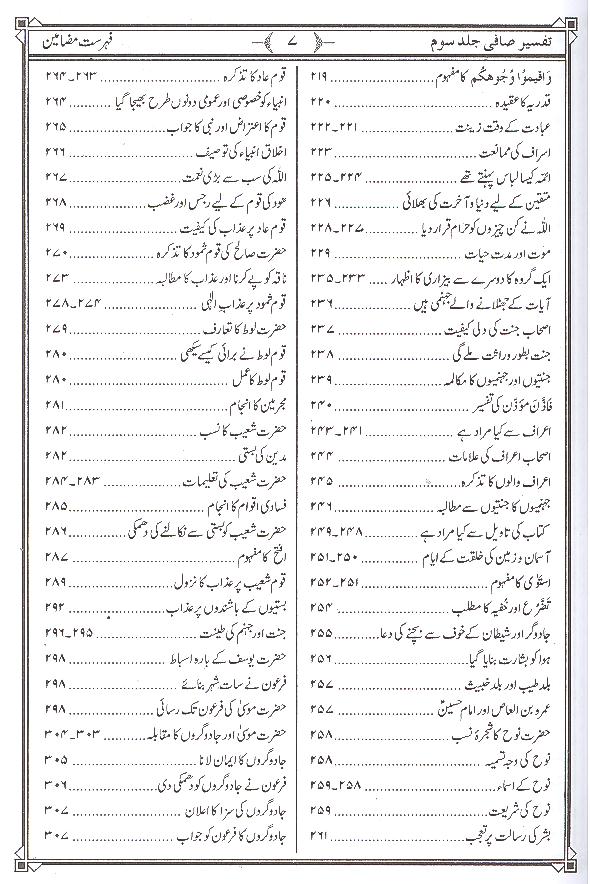 تفسیر صافی جلد سوم ﴿ ۷ ﴾ فہرست مضامین
وَاَقِیْمُوْا وُجُوْهَكُمْ کا مفہوم ........ ۲۱۹
قدریہ کا عقیدہ ........ ۲۲۰
عبادت کے وقت زینت ........ ۲۲۱۔۲۲۲
اسراف کی ممانعت ........ ۲۲۳
ائمہ کیسا لباس پہنتے تھے ........ ۲۲۴۔۲۲۵
متقین کے لیے دنیا و آخرت کی بھلائی ........ ۲۲۶
اللہ نے کن چیزوں کو حرام قرار دیا ........ ۲۲۷۔۲۲۸
موت اور مدت حیات ........ ۲۲۹
ایک گروہ کا دوسرے سے بیزاری کا اظہار ........ ۲۳۳۔۲۳۵
آیات کے جھٹلانے والے جہنمی ہیں ........ ۲۳۶
اصحاب جنت کی دلی کیفیت ........ ۲۳۷
جنت بطور وراثت ملے گی ........ ۲۳۸
جنتیوں اور جہنمیوں کا مکالمہ ........ ۲۳۹
فَاَذَّنَ مُؤَذِّن کی تفسیر ........ ۲۴۰
اعراف سے کیا مراد ہے ........ ۲۴۱۔۲۴۳
اصحاب اعراف کی علامات ........ ۲۴۴
اعراف والوں کا تذکرہ ........ ۲۴۵
جہنمیوں کا جنتیوں سے مطالبہ ........ ۲۴۶
کتاب کی تاویل سے کیا مراد ہے ........ ۲۴۸۔۲۴۹
آسمان و زمین کی خلقت کے ایام ........ ۲۵۰۔۲۵۱
استوٰی کا مفہوم ........ ۲۵۱۔۲۵۲
تَضَرُّع اور خُفیہ کا مطلب ........ ۲۵۴
جادوگر اور شیطان کے خوف سے بچنے کی دعا ........ ۲۵۵
ہوا کو بشارت بنایا گیا ........ ۲۵۶
بلد طیب اور بلد خبیث ........ ۲۵۷
عمرو بن العاص اور امام حسینؑ ........ ۲۵۷
حضرت نوح کا شجرۂ نسب ........ ۲۵۸
نوح کی وجہ تسمیہ ........ ۲۵۸
نوح کے اسماء ........ ۲۵۸۔۲۵۹
نوح کی شریعت ........ ۲۵۹
بشر کی رسالت پر تعجب ........ ۲۶۱
قوم عاد کا تذکرہ ........ ۲۶۳۔۲۶۴
انبیاء کو خصوصی اور عمومی دونوں طرح بھیجا گیا ........ ۲۶۴
قوم کا اعتراض اور نبی کا جواب ........ ۲۶۵
اخلاق انبیاء کی توصیف ........ ۲۶۶
اللہ کی سب سے بڑی نعمت ........ ۲۶۷
ھود کی قوم کے لیے رجس اور غضب ........ ۲۶۸
قوم عاد پر عذاب کی کیفیت ........ ۲۶۹
حضرت صالح کی قوم ثمود کا تذکرہ ........ ۲۷۰
ناقہ کو پے کرنا اور عذاب کا مطالبہ ........ ۲۷۳
قوم ثمود پر عذاب الٰہی ........ ۲۷۴۔۲۷۸
حضرت لوط کا تعارف ........ ۲۷۹
قوم لوط نے برائی کیسے سیکھی ........ ۲۸۰
قوم لوط کا عمل ........ ۲۸۰
مجرمین کا انجام ........ ۲۸۱
حضرت شعیب کا نسب ........ ۲۸۲
مدین کی بستی ........ ۲۸۲
حضرت شعیب کی تعلیمات ........ ۲۸۳۔۲۸۴
فسادی اقوام کا انجام ........ ۲۸۵
حضرت شعیب کو بستی سے نکالنے کی دھمکی ........ ۲۸۶
افتح کا مفہوم ........ ۲۸۷
قوم شعیب پر عذاب کا نزول ........ ۲۸۹
بستیوں کے باشندوں پر عذاب ........ ۲۹۲
جنت اور جہنم کی طینت ........ ۲۹۵۔۲۹۶
حضرت یوسف کے بارہ اسباط ........ ۲۹۸
فرعون نے سات شہر بنائے ........ ۲۹۸
حضرت موسیٰ کی فرعون تک رسائی ........ ۲۹۸
حضرت موسیٰ اور جادوگروں کا مقابلہ ........ ۳۰۳۔۳۰۴
جادوگروں کا ایمان لانا ........ ۳۰۵
فرعون نے جادوگروں کو دھمکی دی ........ ۳۰۶
جادوگروں کی سزا کا اعلان ........ ۳۰۷
جادوگروں کا فرعون کو جواب ........ ۳۰۷